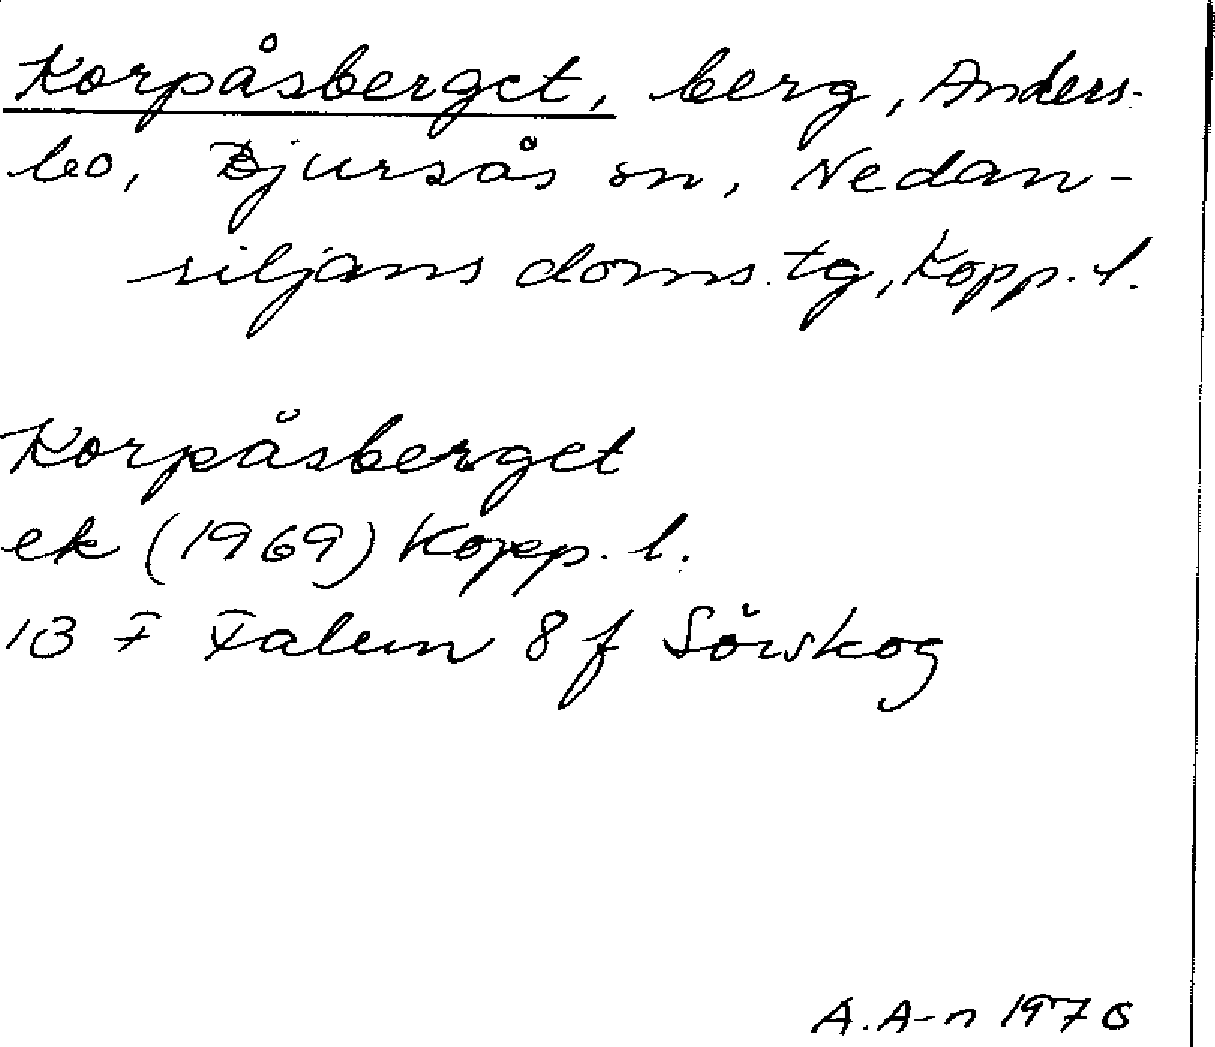 Korpåsberget, berg, Anders-
bo, Bjursås sn, Nedan-
siljans doms. tg, Kopp. l.
Korpåsberget
ek (1969) Kopp. l.
13 F Falun 8 f Sörskog
A. A-n